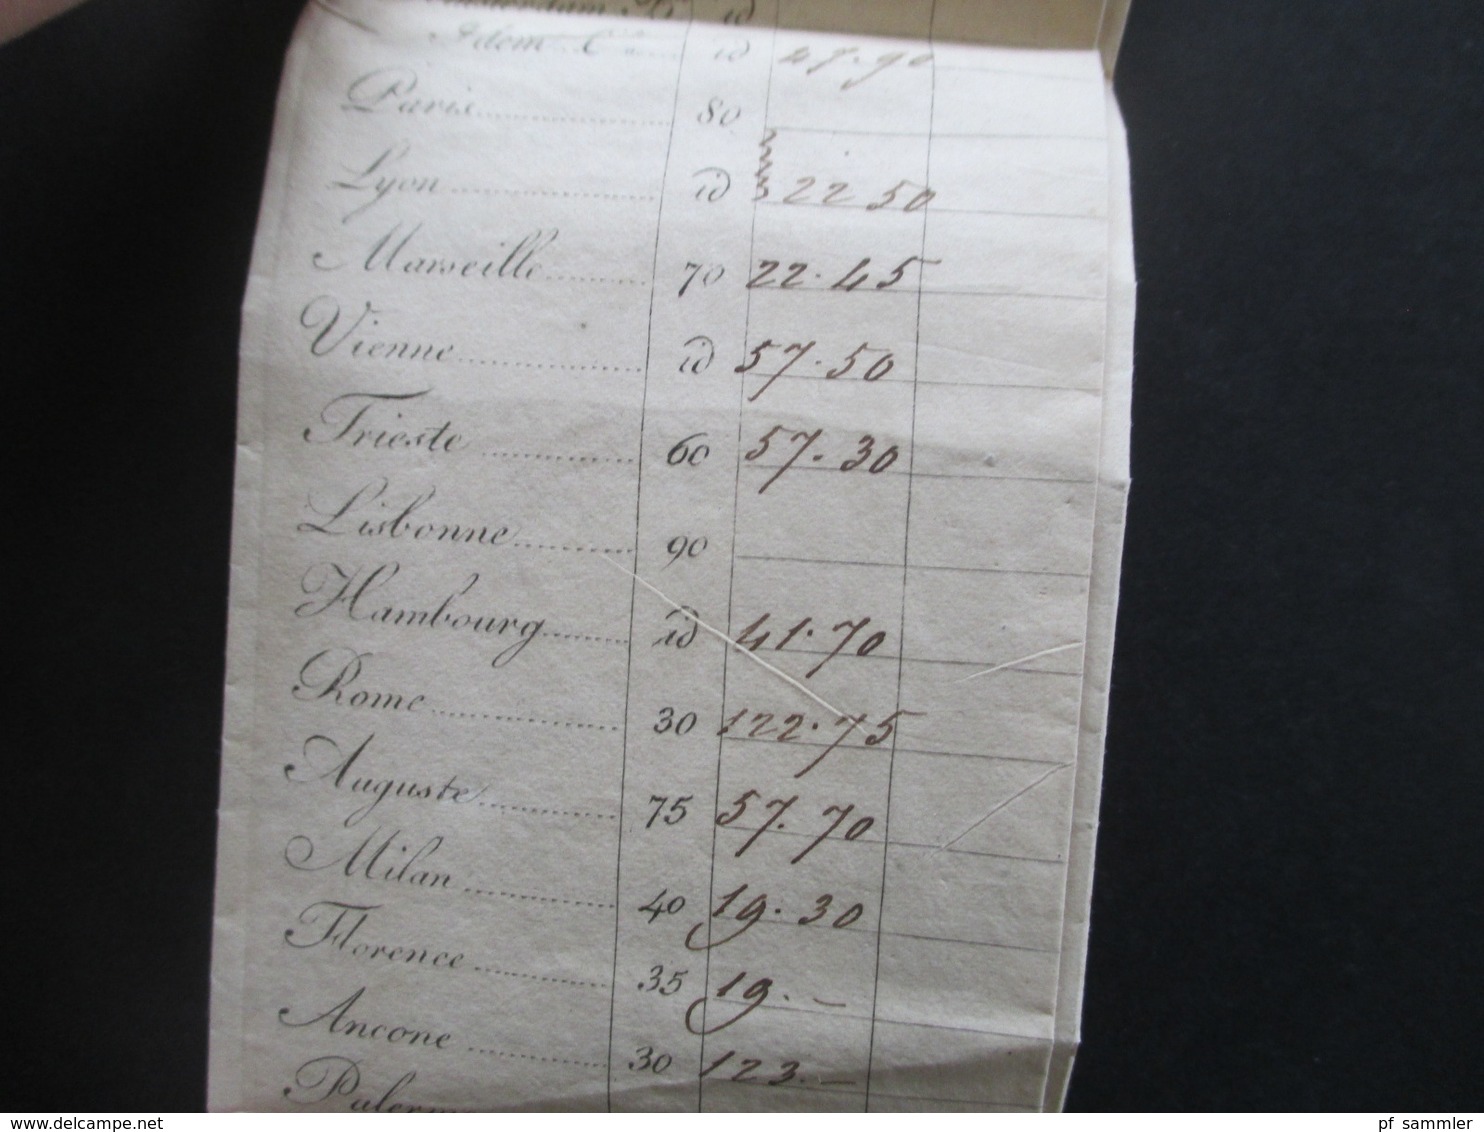 Idem id 47.90
Paris 80
Lyon id 22 50
Marseille 70 22.45
Vienne id 57.50
Trieste 60 57.30
Lisbonne 90
Hambourg id 41.70
Rome 30 122.75
Auguste 75 57.70
Milan 40 19.30
Florence 35 19.–
Ancone 30 123.–
www.delcampe.net
pf_sammler